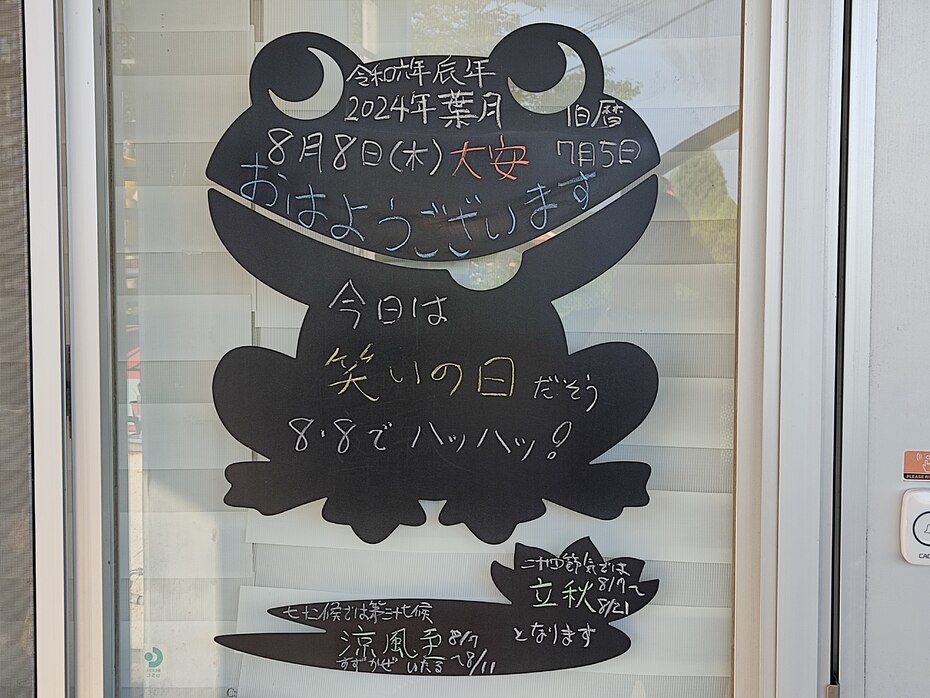 令和六年辰年
2024年葉月
旧暦
8月8日(木)大安
7月5日
おはようございます
今日は
笑いの日だそう
8・8でハッハッ!
二十四節気では
立秋 8/7〜8/21
となります
七十二候では第三十七候
涼風至 8/7〜8/11
すずかぜ いたる
PLEASE